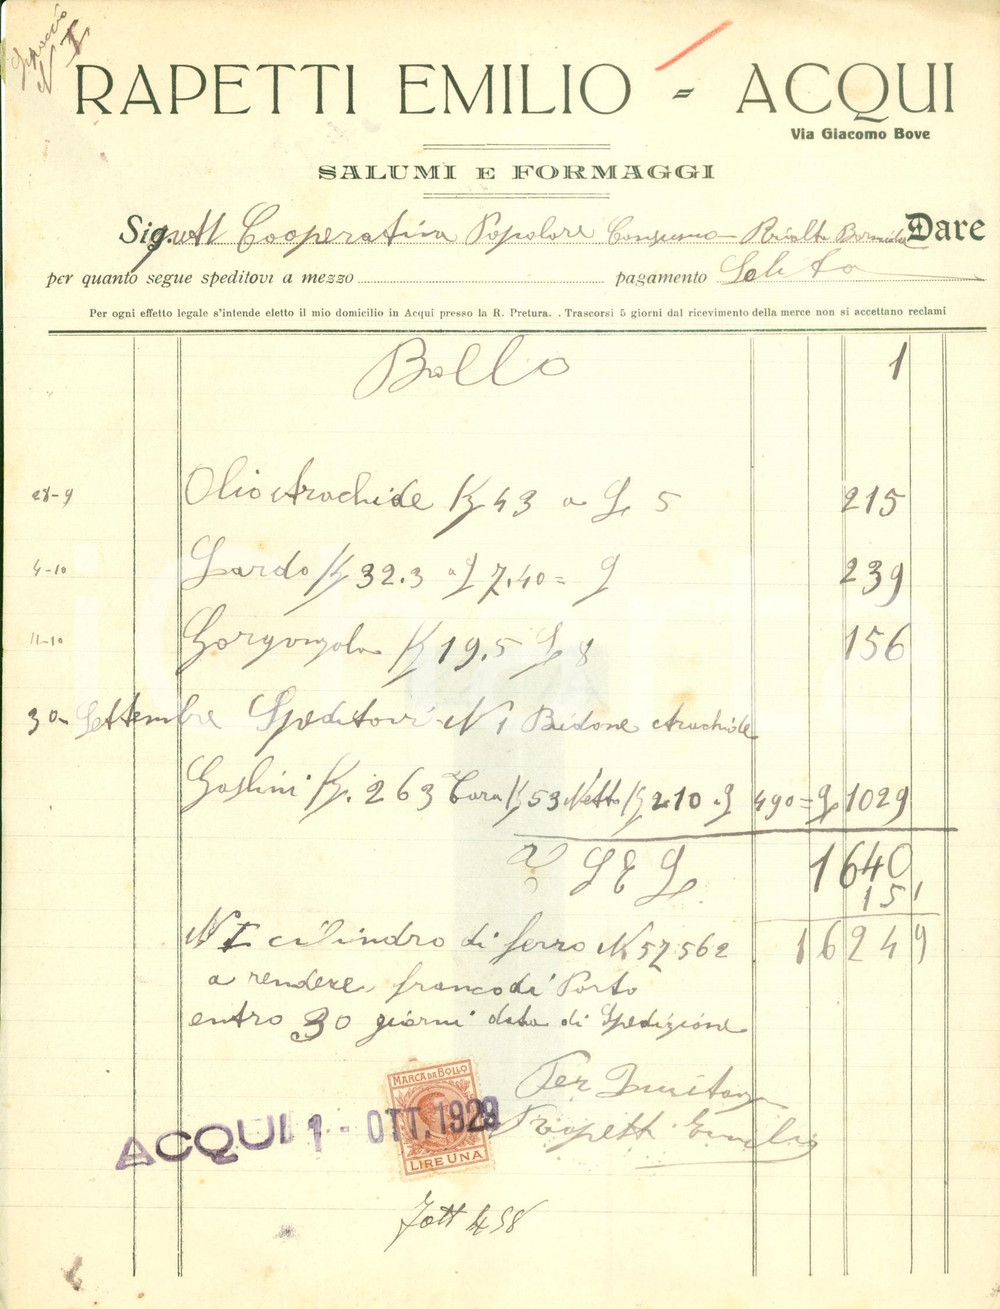 N I
RAPETTI EMILIO - ACQUI
Via Giacomo Bove
SALUMI E FORMAGGI
Sig. Cooperativa Popolare Consumo Rivalta Bormida Dare
per quanto segue speditovi a mezzo pagamento Solito
Per ogni effetto legale s'intende eletto il mio domicilio in Acqui presso la R. Pretura. . Trascorsi 5 giorni dal ricevimento della merce non si accettano reclami
Bollo 1
28-9 Olio Arachide Kg 43 a L 5 215
4-10 Lardo Kg 32.3 a L 7.40 = L 239
11-10 Gorgonzola Kg 19.5 L 8 156
30 - Settembre Speditovi N 1 Bidone Arachide
Gaslini Kg. 263 Tara Kg 53 Netto Kg 210 a L 490 = L 1029
S E L 1640
15 1
N I cilindro di ferro N 57562 16249
a rendere franco di Porto
entro 30 giorni data di Spedizione
MARCA DA BOLLO
Per
Rapetti Emilio
ACQUI 1 - OTT. 1929
LIRE UNA
Fatt 458